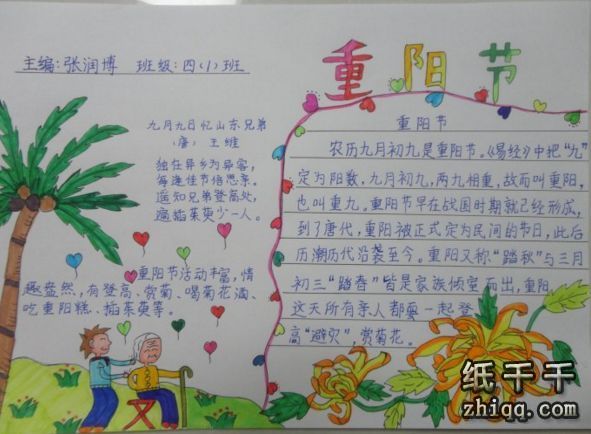 主编:张润博 班级:四(1)班
九月九日忆山东兄弟
(唐) 王维
独在异乡为异客,
每逢佳节倍思亲。
遥知兄弟登高处,
遍插茱萸少一人。
重阳节活动丰富,情
趣盎然,有登高、赏菊、喝菊花酒、
吃重阳糕、插茱萸等。
重阳节
重阳节
农历九月初九是重阳节。《易经》中把“九”
定为阳数,九月初九,两九相重,故而叫重阳,
也叫重九。重阳节早在战国时期就已经形成,
到了唐代,重阳被正式定为民间的节日,此后
历潮历代沿袭至今。重阳又称“踏秋”与三月
初三“踏春”皆是家族倾室而出,重阳
这天所有亲人都要一起登
高“避灾”,赏菊花。
纸千千
zhiqq.com